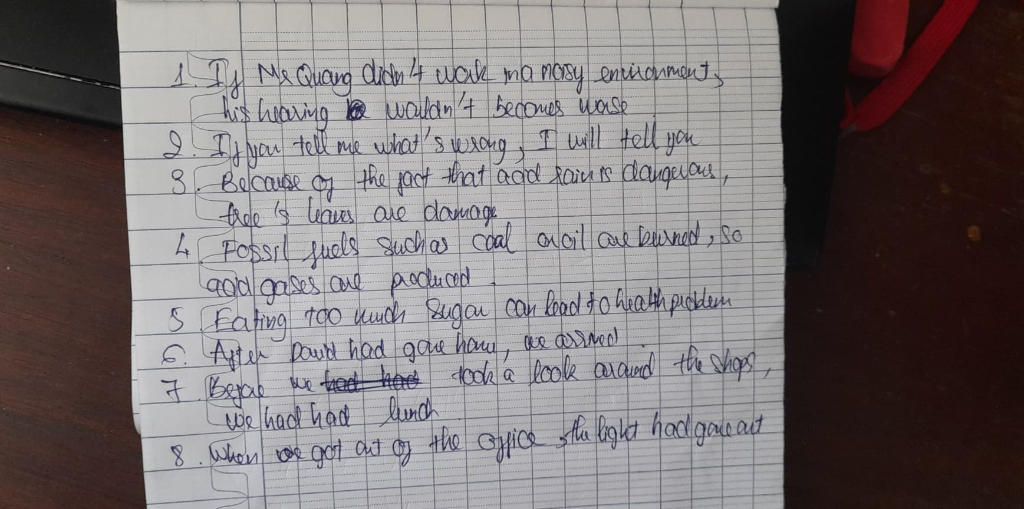 1. If Mr Quang didn't work in a noisy environment,
his hearing wouldn't becomes worse
2. If you tell me what's wrong, I will tell you
3. Because of the fact that acid rain is dangerous,
tree's leaves are damage
4 Fossil fuels such as coal or oil are burned, so
acid gases are produced.
5 Eating too much sugar can lead to health problem
6. After David had gone home, we arrived
7 Before we had had took a look around the shops,
we had had lunch
8. When we got out of the office, the light had gone out